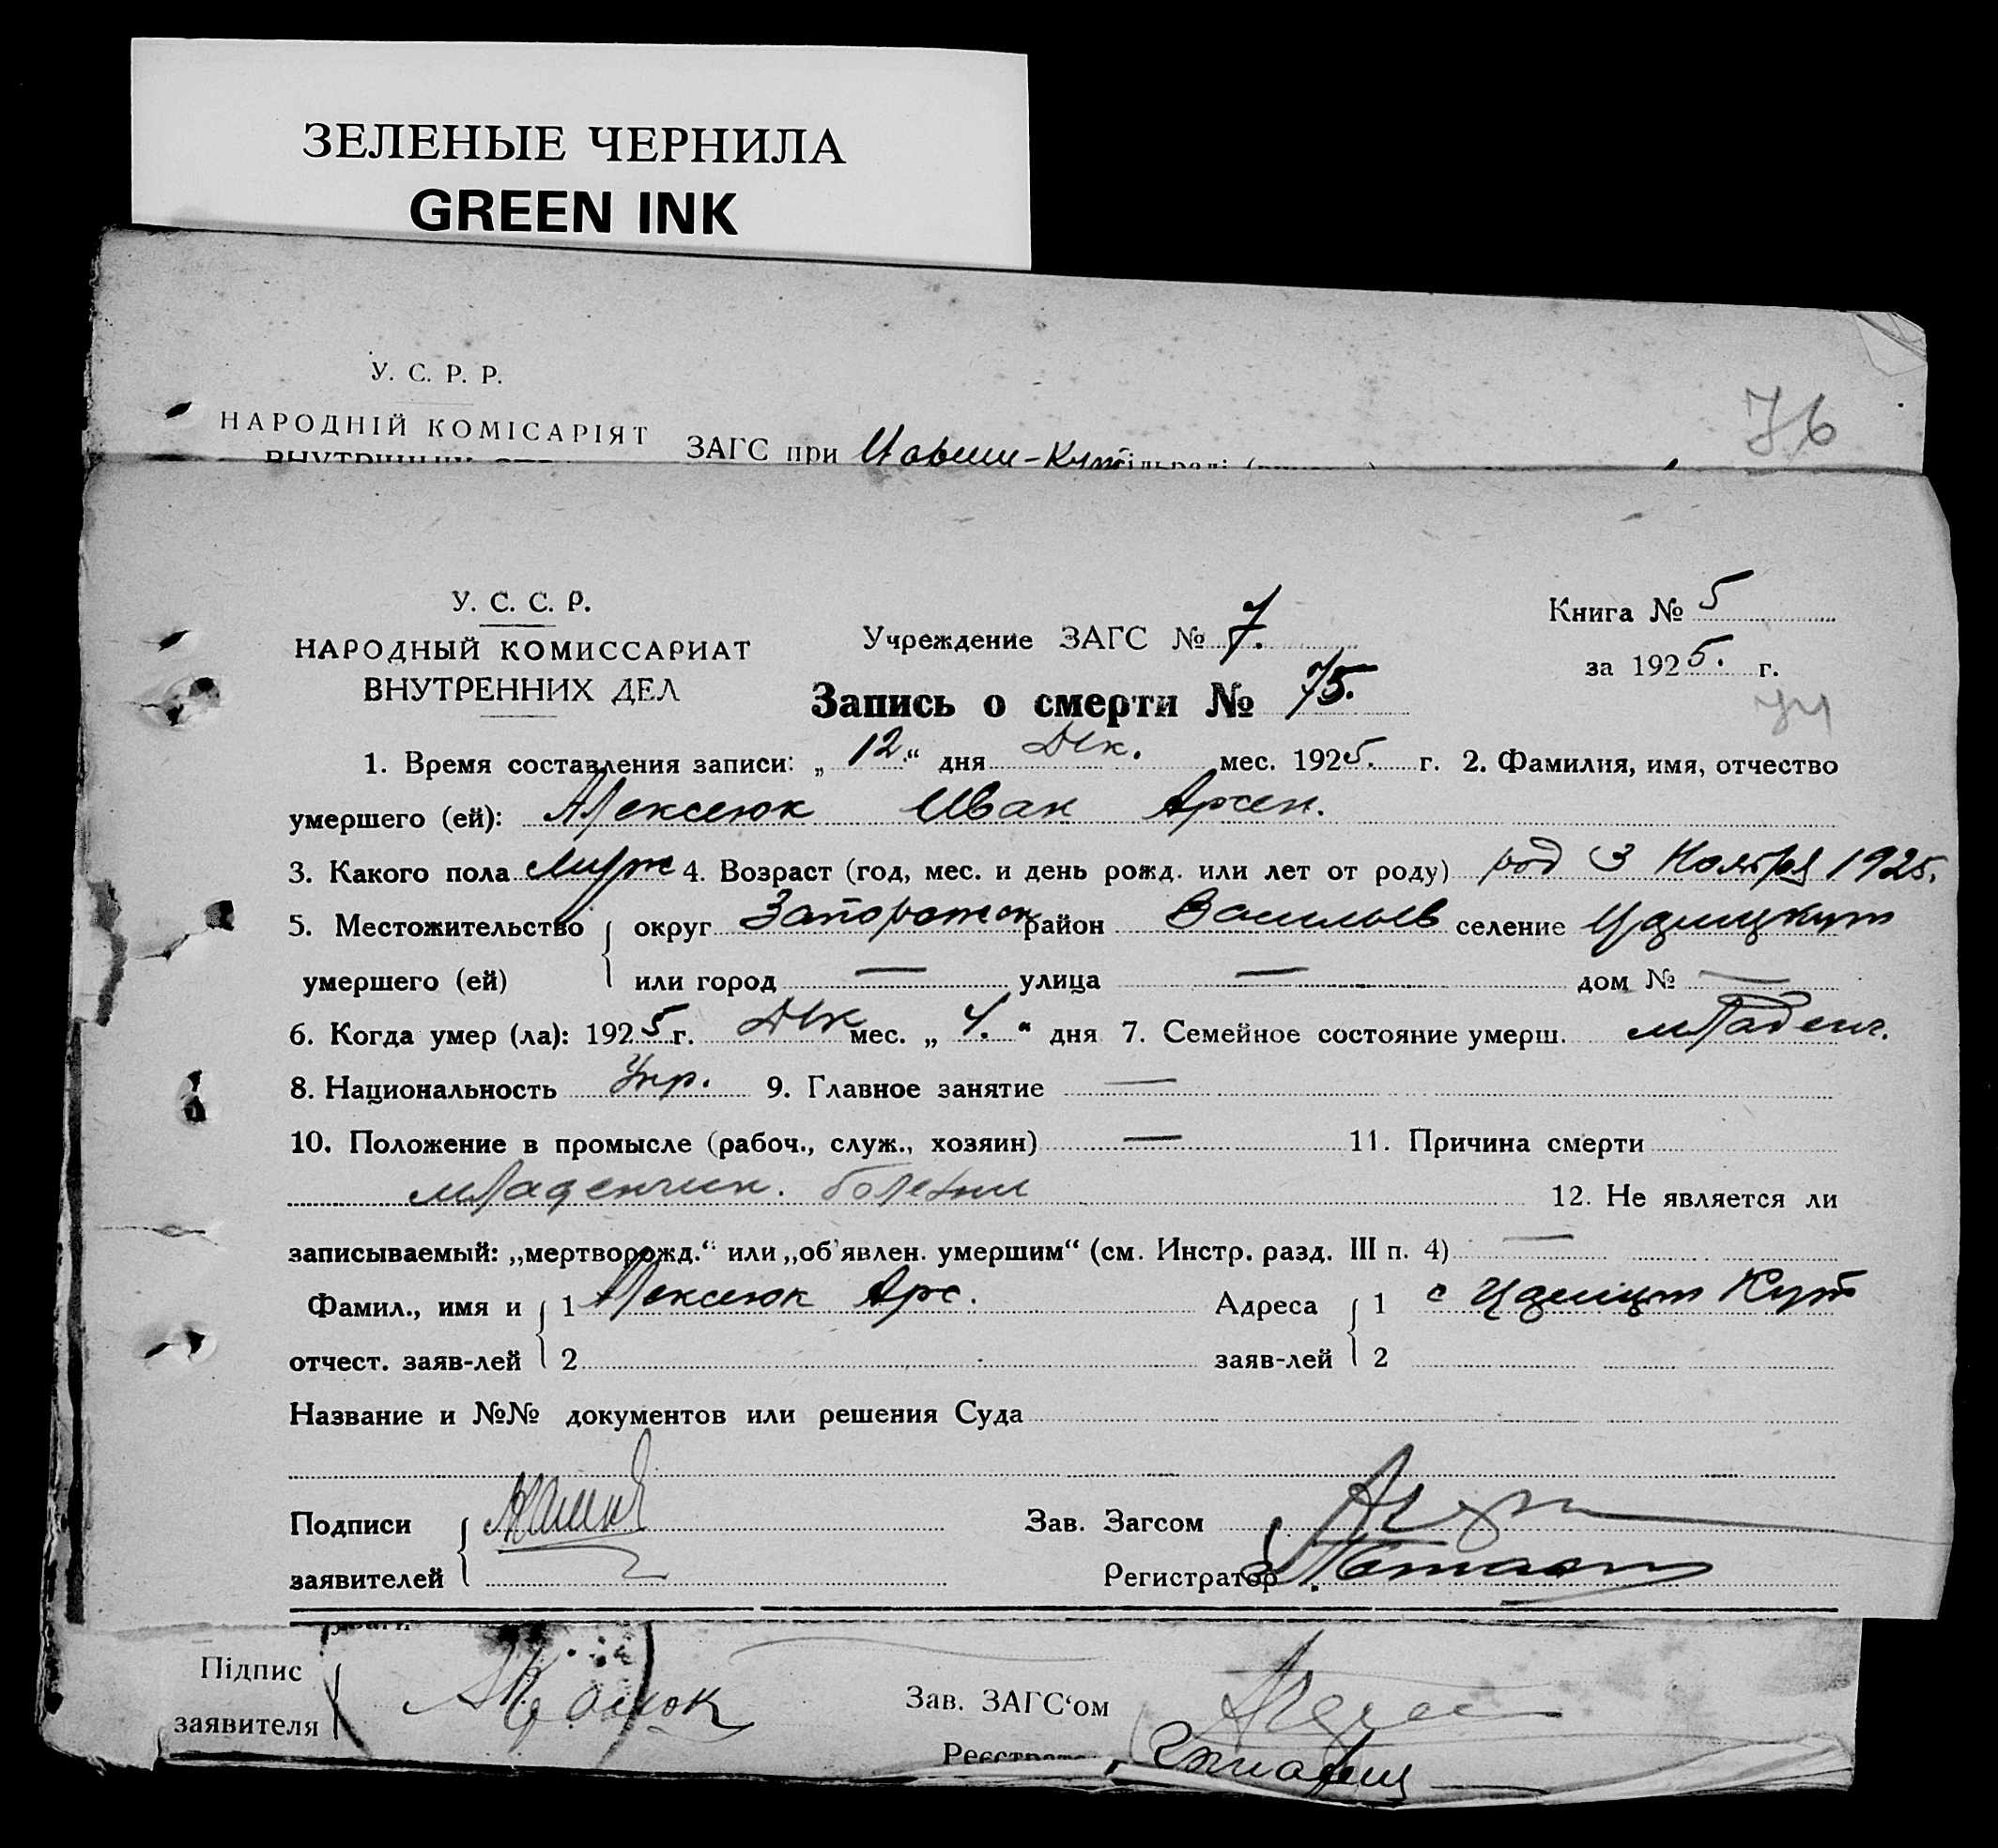 ЗЕЛЕНЫЕ ЧЕРНИЛА
GREEN INK
У. С. Р. Р.
НАРОДНІЙ КОМІСАРІЯТ
ЗАГС при
76
У. С. С. Р.
НАРОДНЫЙ КОМИССАРИАТ
ВНУТРЕННИХ ДЕЛ
Учреждение ЗАГС № 7.
Книга № 5
за 1925. г.
Запись о смерти № 75.
74
1. Время составления записи: „12.“ дня Дек. мес. 1925. г. 2. Фамилия, имя, отчество
умершего (ей): Алексеюк Иван Арсен.
3. Какого пола муж 4. Возраст (год, мес. и день рожд. или лет от роду) род 3 Ноября 1925.
5. Местожительство округ Запорожск район Васильев селение
умершего (ей) или город — улица — дом № —
6. Когда умер (ла): 1925 г. Дек мес. „4.“ дня 7. Семейное состояние умерш. младенч.
8. Национальность Укр. 9. Главное занятие —
10. Положение в промысле (рабоч., служ., хозяин) — 11. Причина смерти
младенческ. болезни 12. Не является ли
записываемый: „мертворожд.“ или „об'явлен. умершим“ (см. Инстр. разд. III п. 4) —
Фамил., имя и 1 Алексеюк Арс. Адреса 1 с Кут
отчест. заяв-лей 2 заяв-лей 2
Название и №№ документов или решения Суда
Подписи Зав. Загсом
заявителей Регистратор
Підпис
заявителя
Зав. ЗАГС‘ом